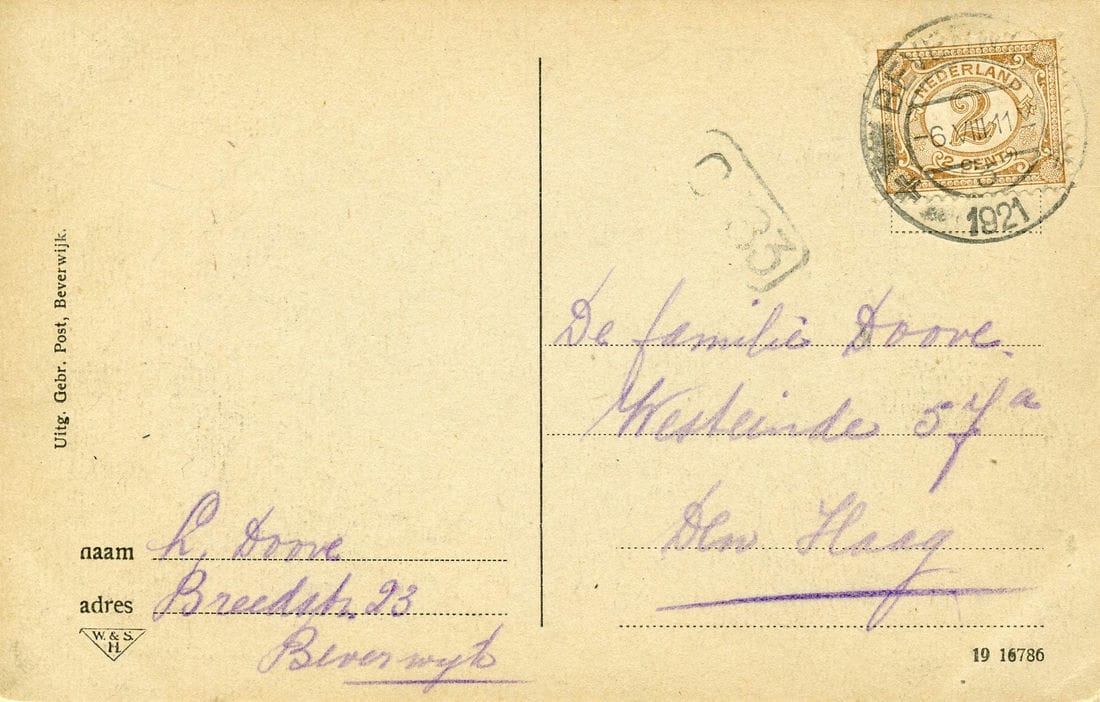 Uitg. Gebr. Post, Beverwijk.
NEDERLAND
2
2 CENT
6.VIII.11
1921
De familie Doove.
Westeinde 57a
Den Haag
naam L. Doove
adres Breedstr. 23
Beverwyk
W. & S.
H.
19 16786